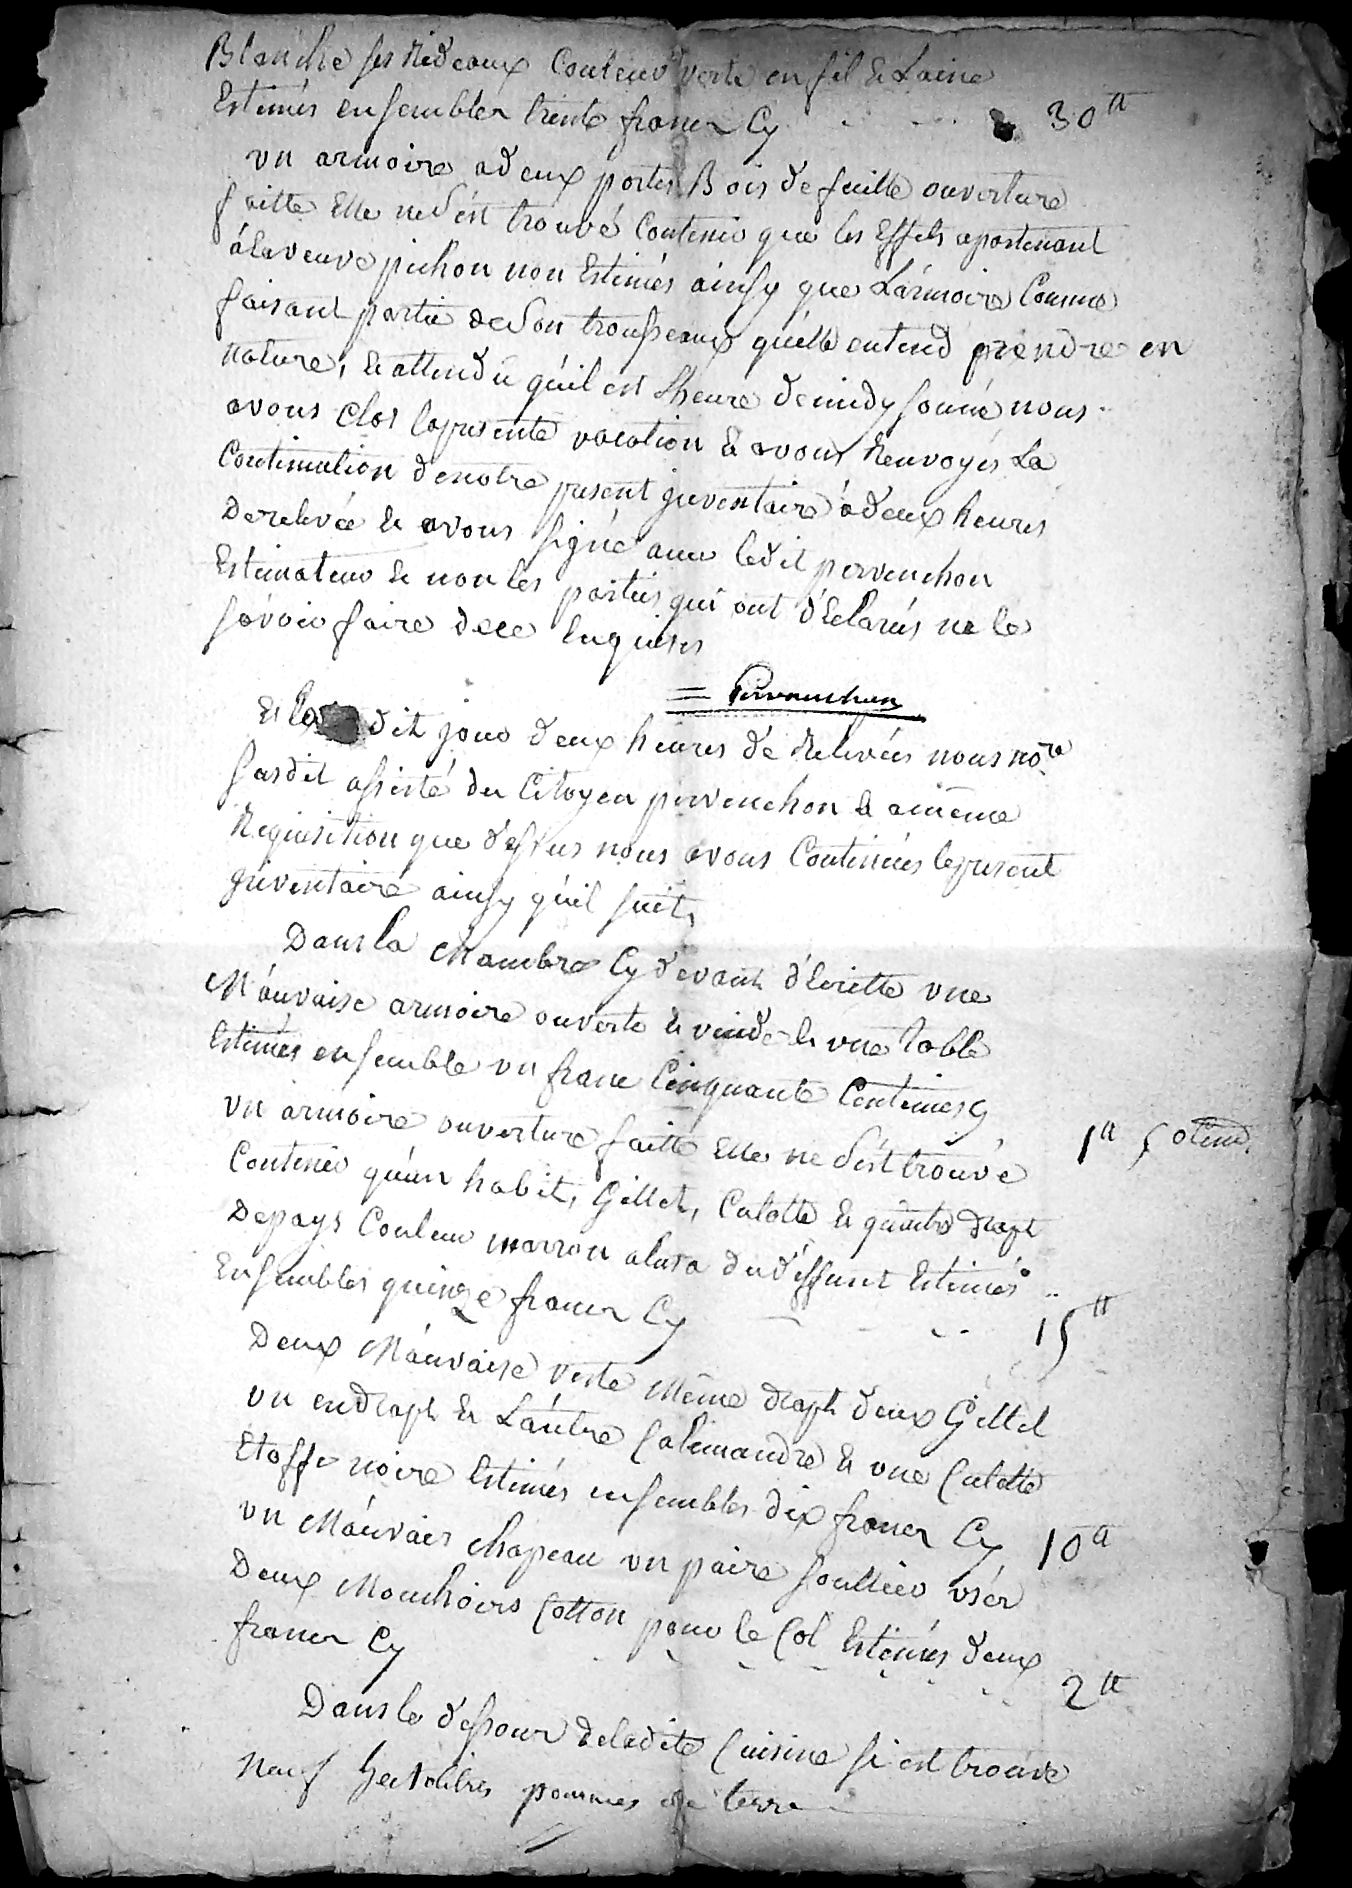 Blanche ses Rideaux Couleur verte en fil & Laine
Estimés ensembles trente francs Cy 30tt
un armoire a deux portes Bois de feuille ouverture
faitte Elle ne s'est trouvé Contenir que les Effets apartenant
á la veuve pichon non Estimés ainsy que L'armoire Comme
faisant partie de son trousseaux qu'elle entend prendre en
nature, & attendû qu'il est l'heure de midy sonné, nous
avons Clos la presente vacation & avons Renvoyés La
Continuation de notre present jnventaire á deux heures
De relevée & avons signé avec le dit pervenchon
Estimateur & non les parties qui ont déclarés ne le
sávoir faire de ce Enquises
= Pervenchon
Et le dit jour deux heures de Relevées nous nore
susdit assisté du Citoyen pervenchon & a même
Requisition que dessus nous avons Continués le present
jnventaire ainsy qu'il suit,
Dans la Chambre Cy devant décritte une
Máuvaise armoire ouverte & vuide & une table
Estimés ensemble un franc Cinquante Centimes Cy 1tt 50 Cent.
un armoire ouverture faitte Elle ne s'est trouvé
Contenir qu'un habit, Gillet, Culotte & guêtre drapt
De pays Couleur marron a lusa du déffunt Estimés
Ensembles quinze francs Cy 15tt
Deux Máuvaise veste Même drapt deux Gillet
un en drapt & L'autre Calemandre & une Culotte
Etoffe noire Estimés ensembles dix francs Cy 10tt
un Máuvais Chapeau un paire soullier usér
Deux Mouchoirs Cotton pour le Col Estimés deux
francs Cy 2tt
Dans le dessour de la dite Cuisine si est trouvé
Neuf hectolitres pommes de terre